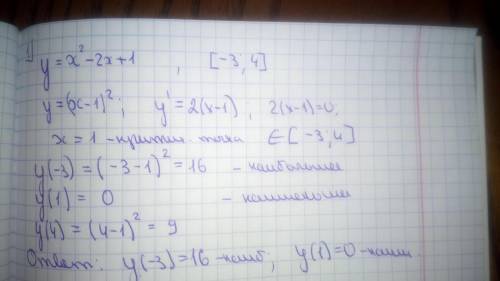 1)
y = x² - 2x + 1 , [-3; 4]
y = (x - 1)²; y' = 2(x - 1) , 2(x-1)=0,
x = 1 - критич. точка ∈ [-3; 4]
y(-3) = (-3 - 1)² = 16 - наибольшее
y(1) = 0 - наименьшее
y(4) = (4-1)² = 9
Ответ: y(-3) = 16 - наиб; y(1) = 0 - наим.